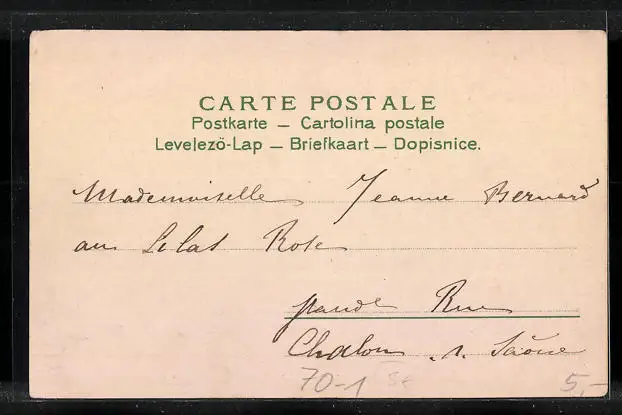 CARTE POSTALE
Postkarte — Cartolina postale
Levelező-Lap — Briefkaart — Dopisnice.
Mademoiselle Jeanne Bernard
au Lilas Rose
grande Rue
Chalon s. Saône
70-1
5,-